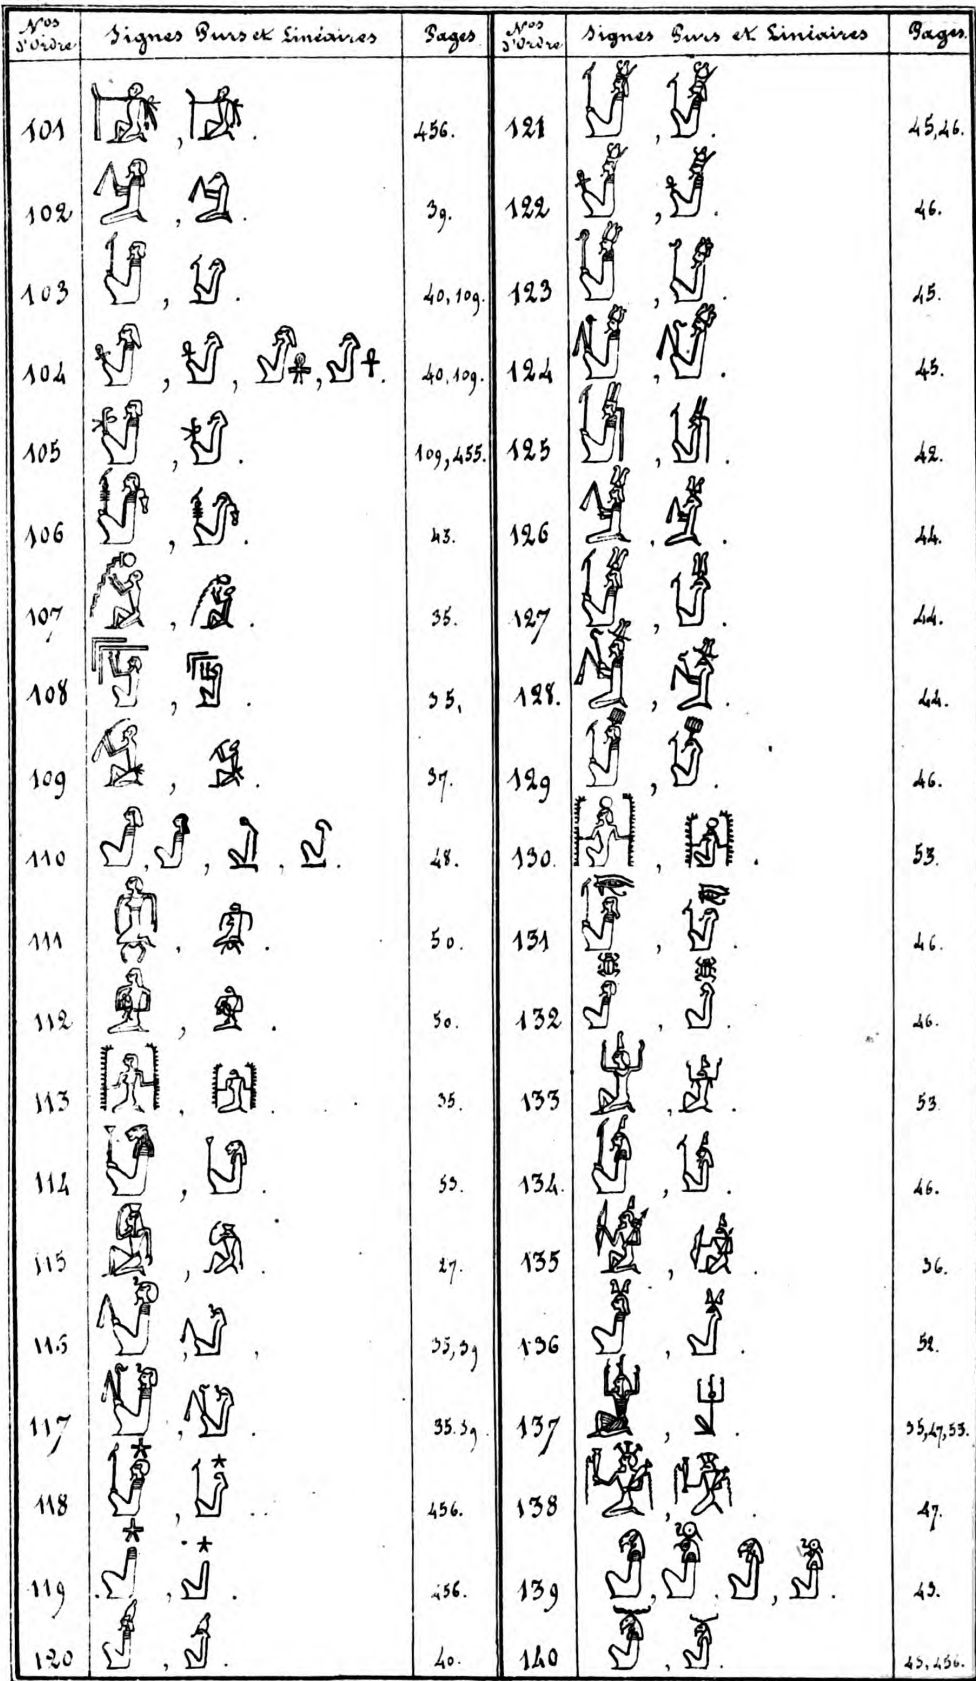 Nos d'Ordre Signes Purs et Linéaires Pages
101 , . 456.
102 , . 39.
103 , . 40, 109.
104 , , , . 40, 109.
105 , . 109, 455.
106 , . 43.
107 , . 35.
108 , . 35,
109 , . 37.
110 , , , . 48.
111 , . 50.
112 , . 50.
113 , . 35.
114 , . 53.
115 , . 27.
116 , , 35, 39
117 , . 35.39
118 , . 456.
119 , . 456.
120 , . 40.
Nos d'Ordre Signes Purs et Linéaires Pages.
121 , . 45, 46.
122 , . 46.
123 , . 45.
124 , . 45.
125 , . 42.
126 , . 44.
127 , . 44.
128. , . 44.
129 , . 46.
130. , . 53.
131 , . 46.
132 , . 46.
133 , . 53.
134. , . 46.
135 , . 36.
136 , . 52.
137 , . 35, 47, 53.
138 , . 47.
139 , . , . 43.
140 , . 43, 456.